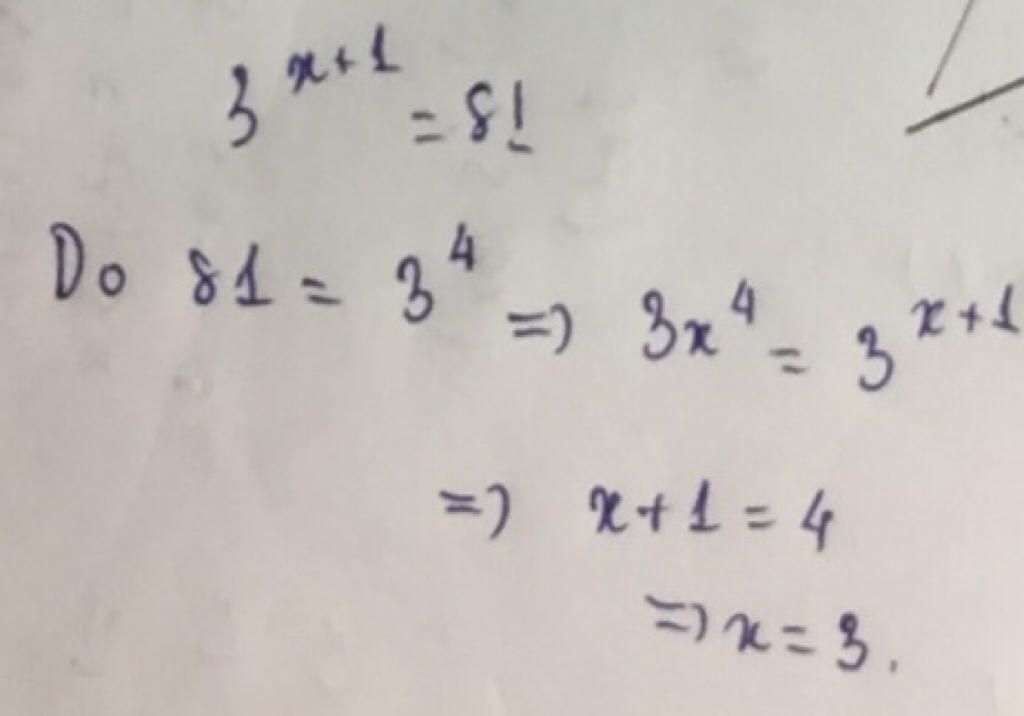 3^{x+1} = 81
Do 81 = 3^4 => 3x^4 = 3^{x+1}
=> x+1 = 4
=> x = 3.